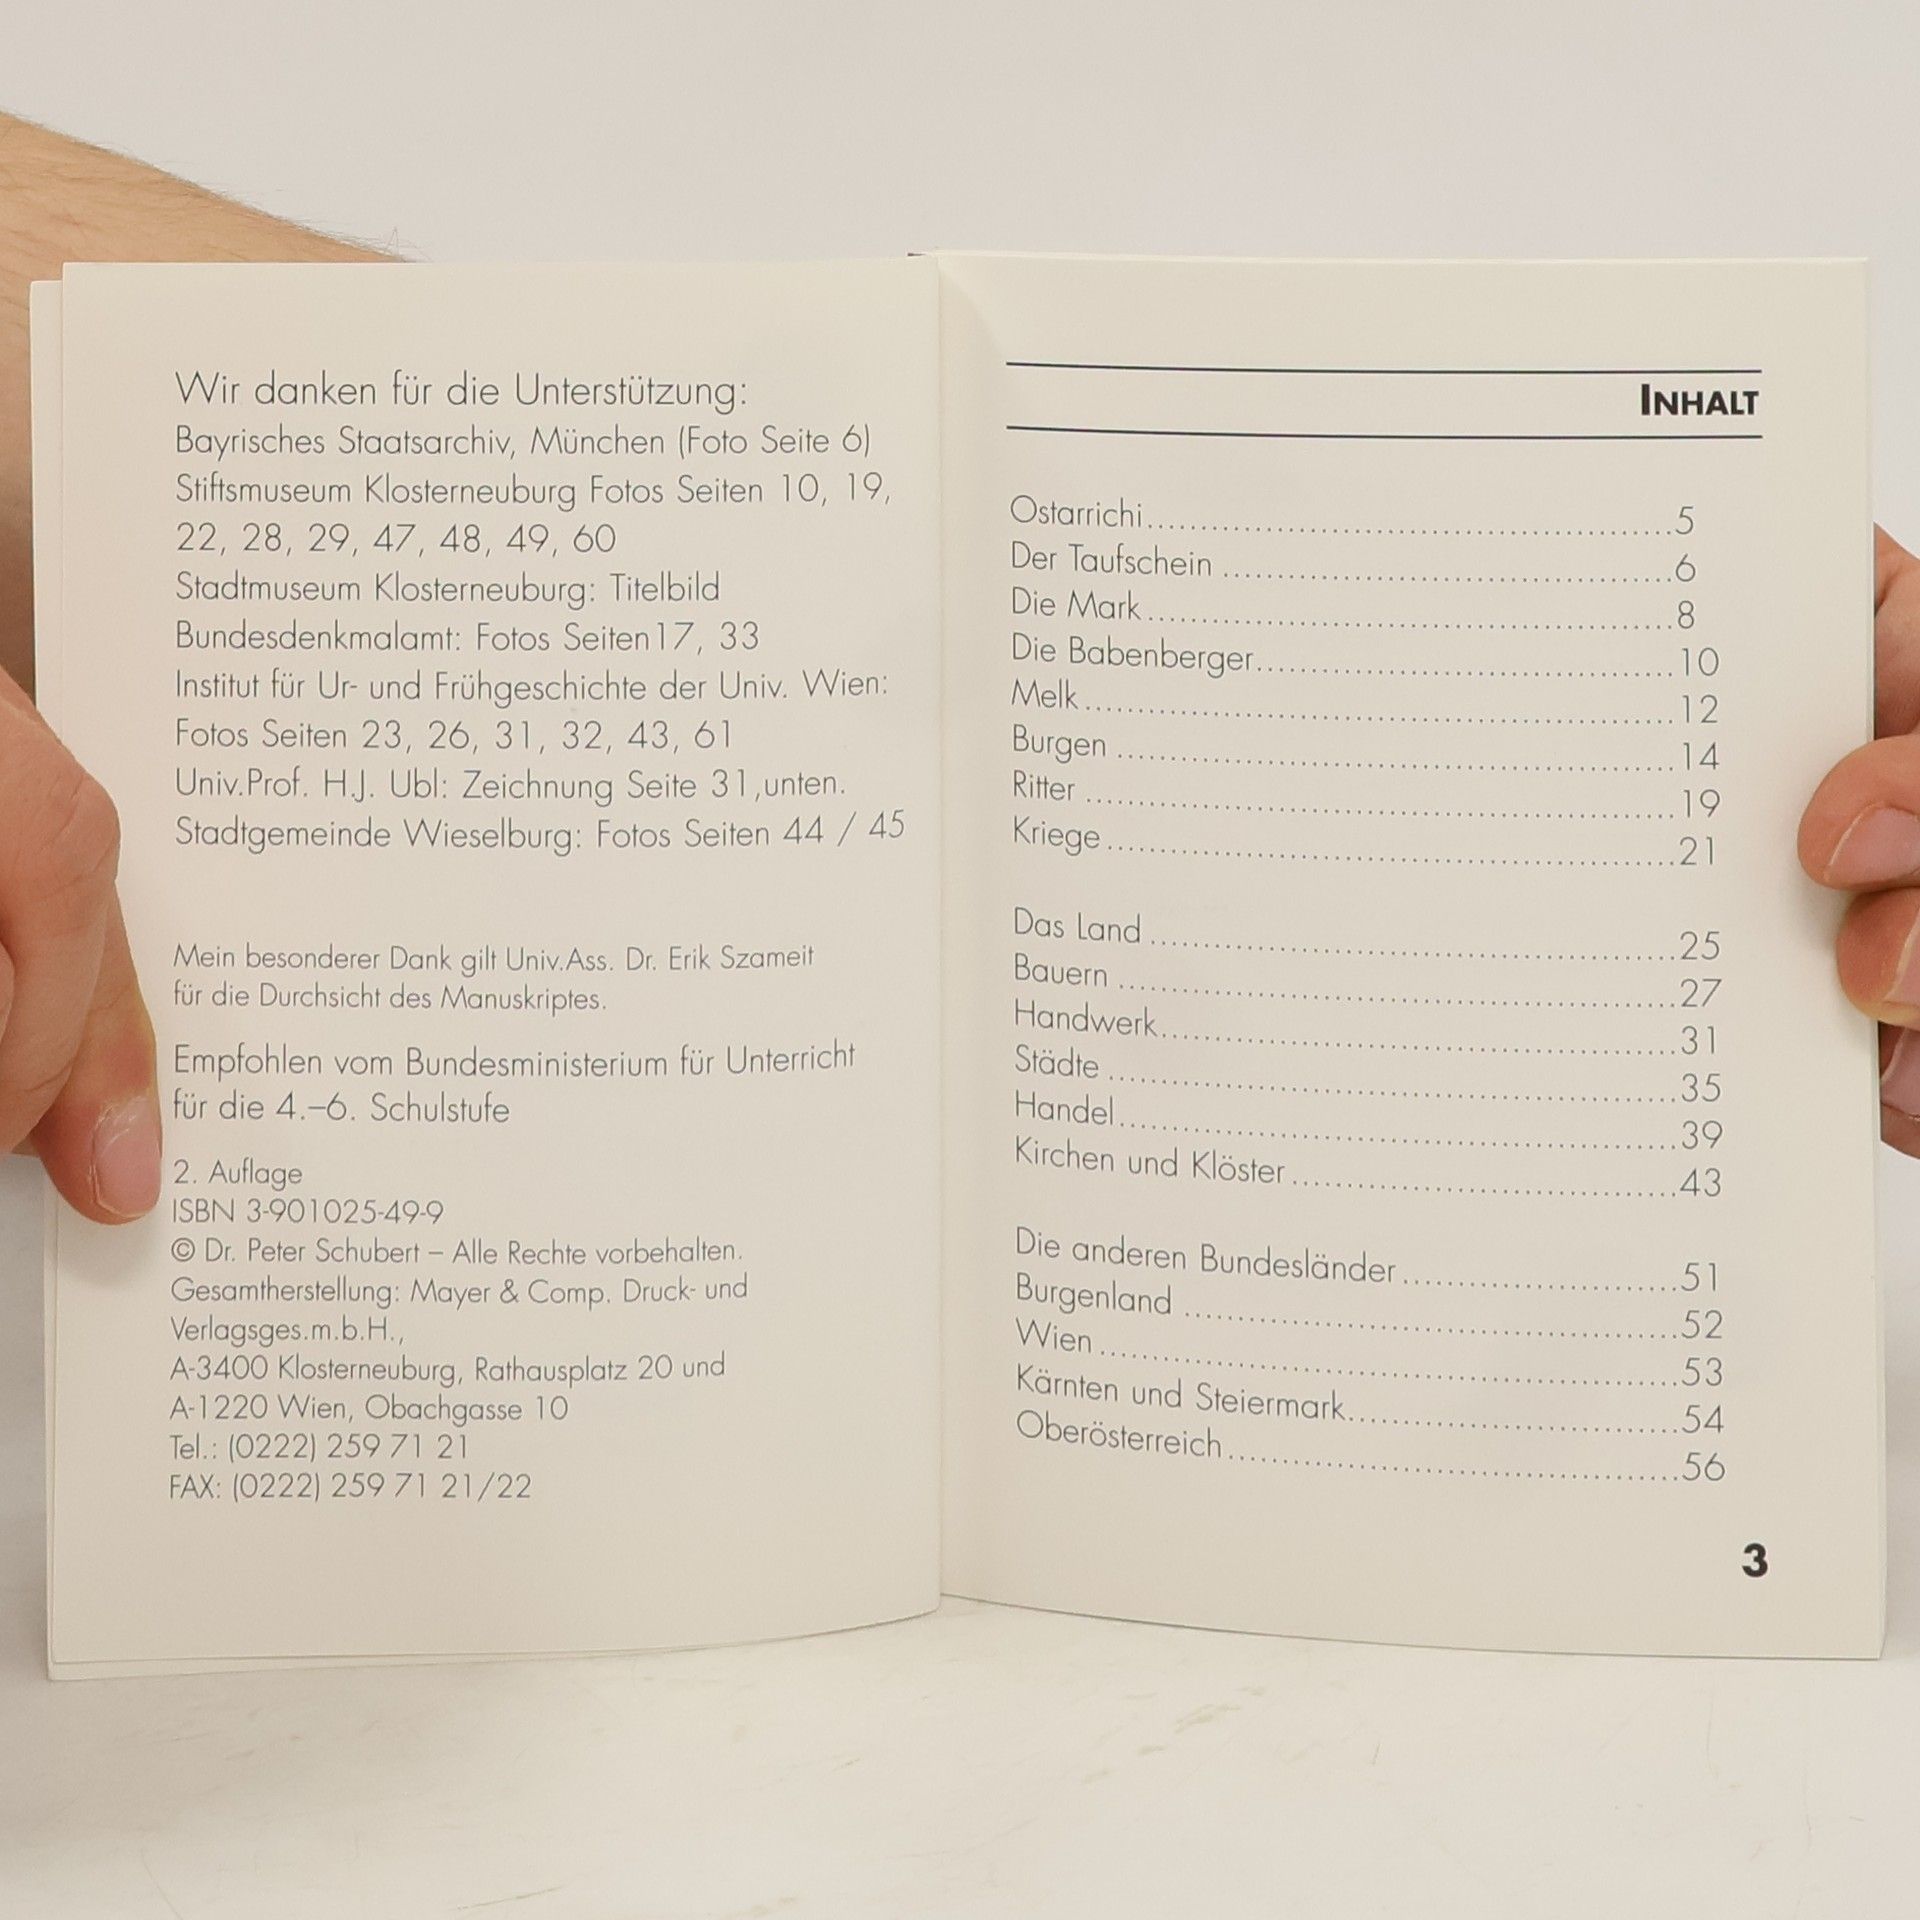 Wir danken für die Unterstützung:
Bayrisches Staatsarchiv, München (Foto Seite 6)
Stiftsmuseum Klosterneuburg Fotos Seiten 10, 19,
22, 28, 29, 47, 48, 49, 60
Stadtmuseum Klosterneuburg: Titelbild
Bundesdenkmalamt: Fotos Seiten17, 33
Institut für Ur- und Frühgeschichte der Univ. Wien:
Fotos Seiten 23, 26, 31, 32, 43, 61
Univ.Prof. H.J. Ubl: Zeichnung Seite 31,unten.
Stadtgemeinde Wieselburg: Fotos Seiten 44 / 45
Mein besonderer Dank gilt Univ.Ass. Dr. Erik Szameit
für die Durchsicht des Manuskriptes.
Empfohlen vom Bundesministerium für Unterricht
für die 4.–6. Schulstufe
2. Auflage
ISBN 3-901025-49-9
© Dr. Peter Schubert – Alle Rechte vorbehalten.
Gesamtherstellung: Mayer & Comp. Druck- und
Verlagsges.m.b.H.,
A-3400 Klosterneuburg, Rathausplatz 20 und
A-1220 Wien, Obachgasse 10
Tel.: (0222) 259 71 21
FAX: (0222) 259 71 21/22
INHALT
Ostarrichi 5
Der Taufschein 6
Die Mark 8
Die Babenberger 10
Melk 12
Burgen 14
Ritter 19
Kriege 21
Das Land 25
Bauern 27
Handwerk 31
Städte 35
Handel 39
Kirchen und Klöster 43
Die anderen Bundesländer 51
Burgenland 52
Wien 53
Kärnten und Steiermark 54
Oberösterreich 56
3